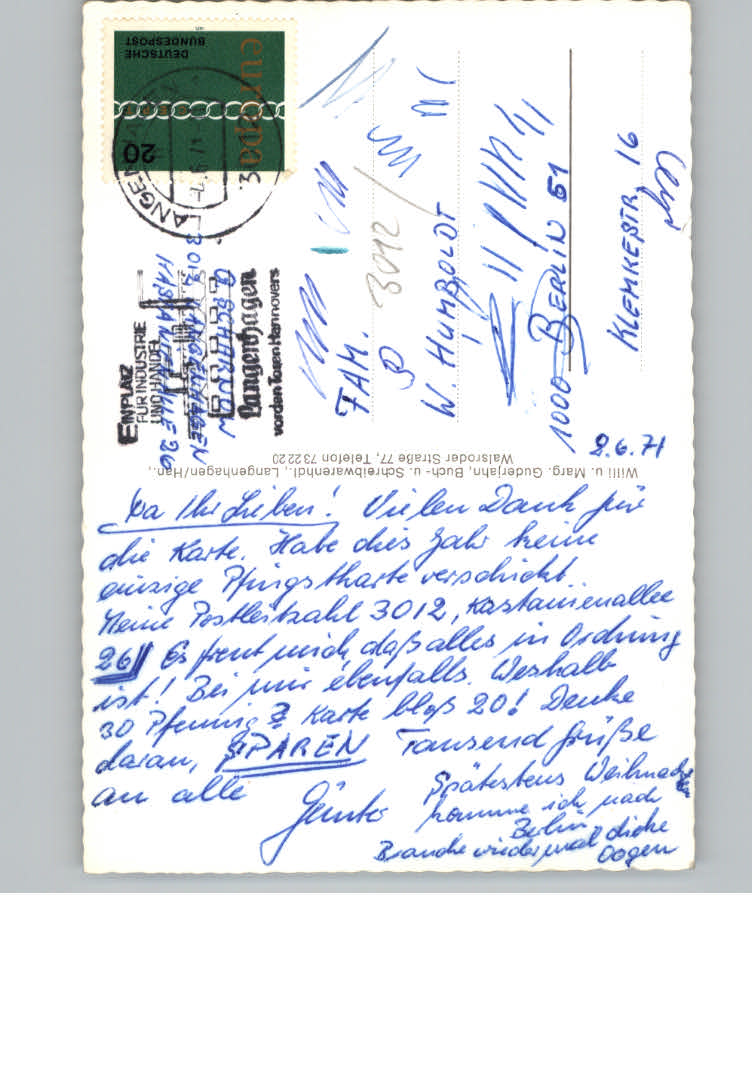 2.6.71
Na Ihr Lieben! Vielen Dank für
die Karte. Habe dies Jahr keine
einzige Pfingstkarte verschickt.
Meine Postleitzahl 3012, Kastanienallee
26! Es freut mich, daß alles in Ordnung
ist! Bei mir ebenfalls. Weshalb
30 Pfennig? Karte bloß 20! Denke
daran, SPAREN Tausend Grüße
an alle
Günter
Spätestens Weihnachten
komme ich nach
Berlin
Brauche wieder mal dicke
Oogen
Willi u. Marg. Guderjahn, Buch- u. Schreibwarenhdl., Langenhagen/Han.,
Walsroder Straße 77, Telefon 73 22 20
FAM.
3012
W. HUMBOLDT
1000 BERLIN 51
KLEMKESTR. 16
G. SCHARNOW
3012 LANGENHAGEN
KASTANIENALLEE 26
EINPLATZ
FÜR INDUSTRIE
UND HANDEL
Langenhagen
vor den Toren Hannovers
DEUTSCHE
BUNDESPOST
europa
20